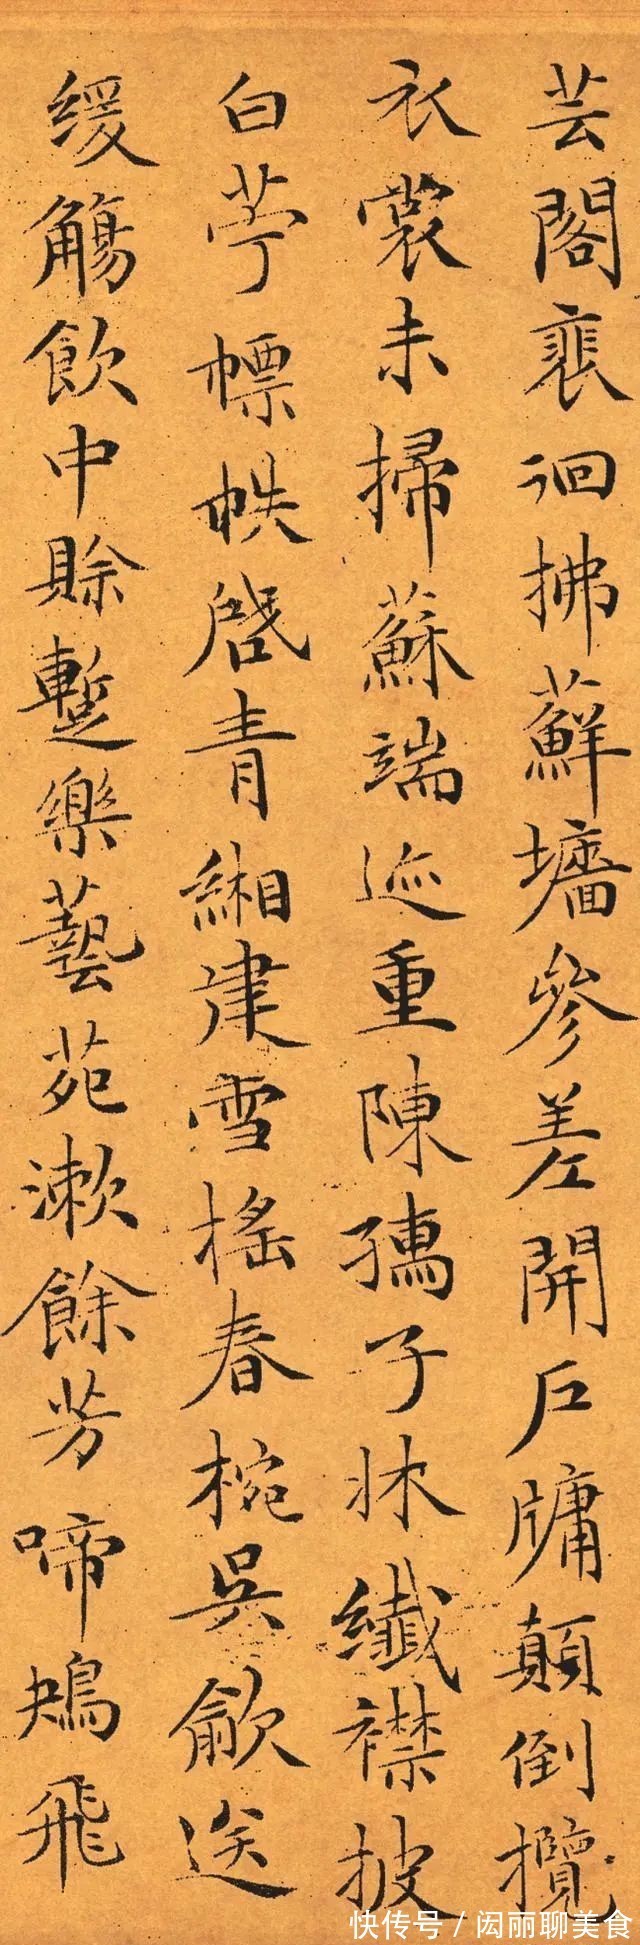 芸閣裴徊拂蘚墻參差開戶牖顛倒攬
衣裳未掃蘇端迹重陳孺子牀纖襟披
白苧幖帙啓青緗建雪榣春椀吳歈送
緩觴飲中賖蹔樂藝苑漱餘芳啼鴂飛
快传号／闳丽聊美食